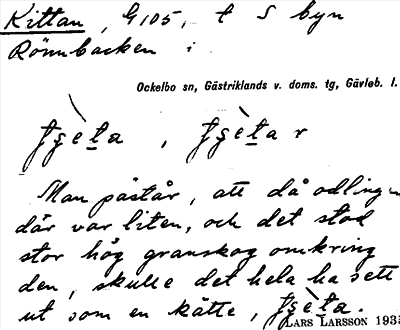 Kittan, G105, t S byn
Rönnbacken i
Ockelbo sn, Gästriklands v. doms. tg, Gävleb. l.
Man påstår, att då odlingen
där var liten, och det stod
stor hög granskog omkring
den, skulle det hela ha sett
ut som en kätte,
LARS LARSSON 193